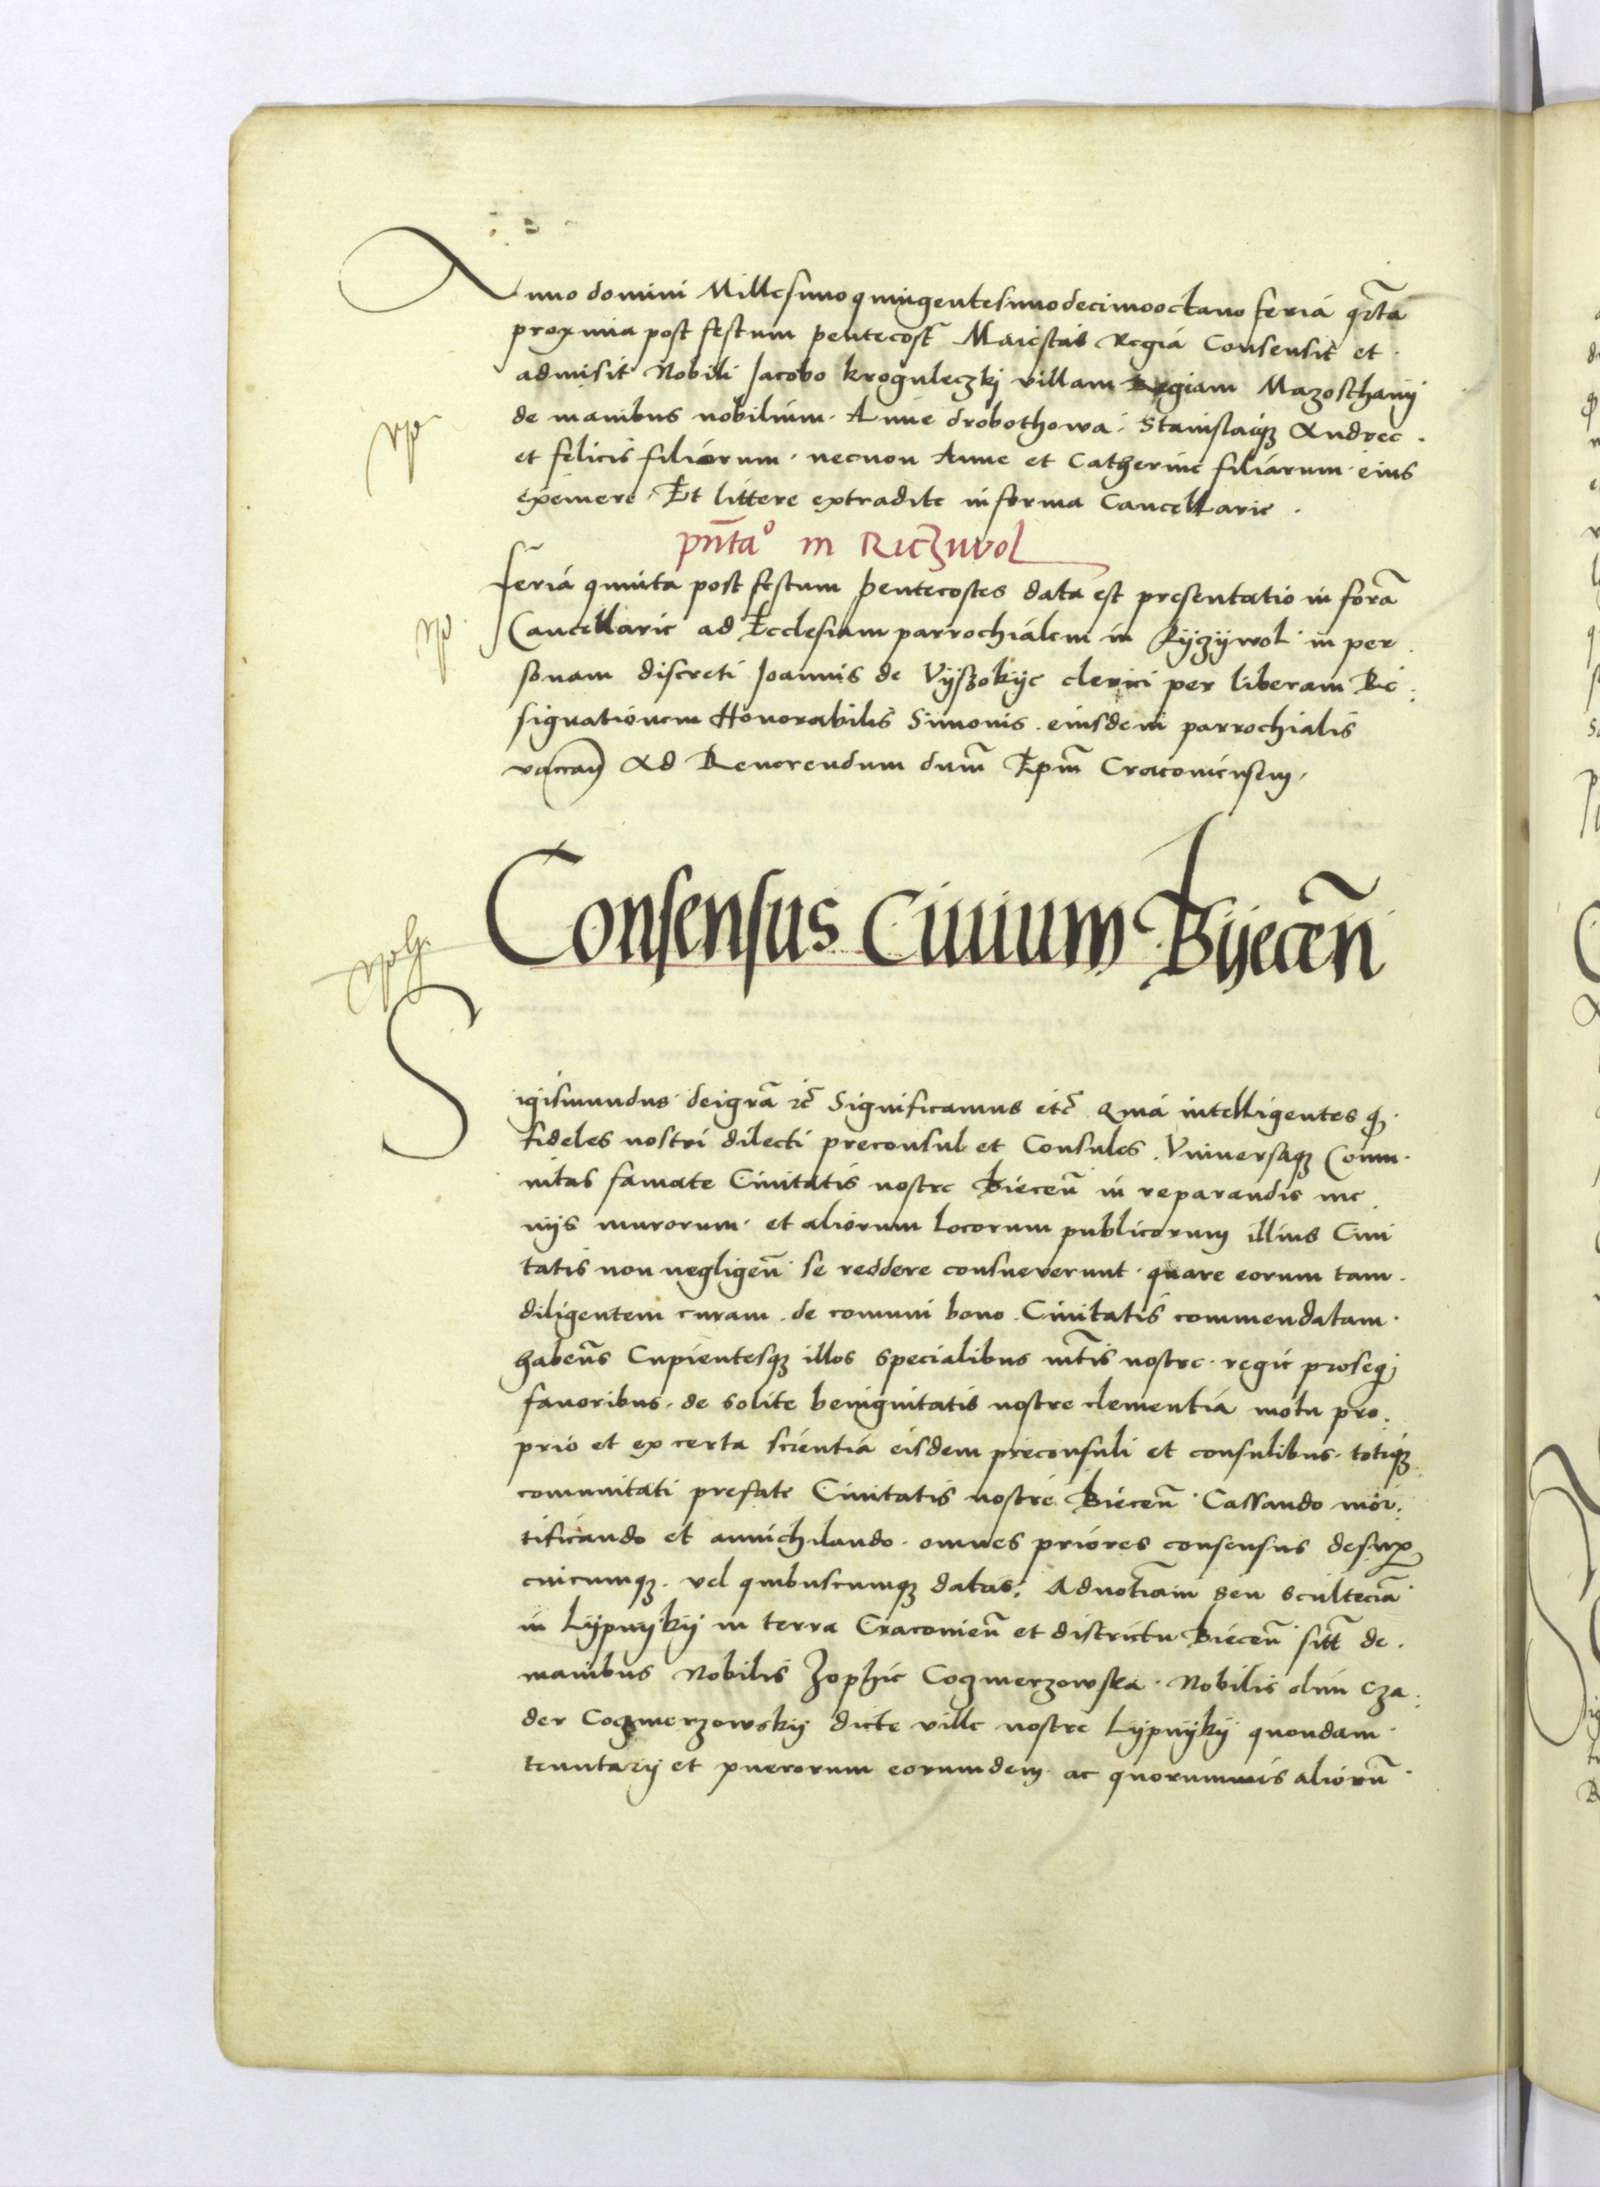 Anno domini Millesimo quingentesimo decimo octauo feria qrta
proxima post festum pentecost Maiestas regia Consensit et
admisit Nobili Jacobo kroguleczkj villam Regiam Mazoschanij
de manibus nobilium Anne drobothowa Stanislaiq Andree
et felicis filiorum necnon Anne et Catherine filiarum eius
exeimere Et littere extradite in forma Cancellarie
pnta° in Riczuvol
feria quinta post festum pentecostes data est presentatio in fora
Cancellarie ad Ecclesiam parrochialem in Ryzywol in per
sonam discreti Joannis de Vyszokye clerici per liberam Re
signationem Honorabilis Simonis eiusdem parrochialis
Ad Reuorendum dnm Epm Craconiensem
Consensus Ciuium Byecen
Sigismundus dei gra etc Significamus etc Quia intelligentes q
fideles nostri dilecti preconsul et Consules Vniuersaq Comu
nitas famate Ciuitatis nostre Biecen in reparandis me
nijs murorum et aliorum locorum publicorum illius Ciui
tatis non negligen se reddere consueuerunt quare eorum tam
diligentem curam de comuni bono Ciuitatis commendatam
habens Cupientesq illos specialibus mtis nostre regie proseqi
fauoribus de solite benignitatis nostre clementia motu pro
prio et ex certa scientia eisdem preconsuli et consulibus totiq
comunitati prefate Ciuitatis nostre Biecen Cassando mor
tificando et annichilando omnes priores consensus desup
cuicumq vel quibuscumq datas Aduotiam seu scultecia
in Lypnyky in terra Craconien et districtu Biecen sitt de
manibus Nobilis Zophie Coczmerzowska Nobilis olim Cza
der Coczmerzowsky dicte ville nostre Lypnyky quondam
tenutarij et puerorum eorumdem ac quorumuis alioru